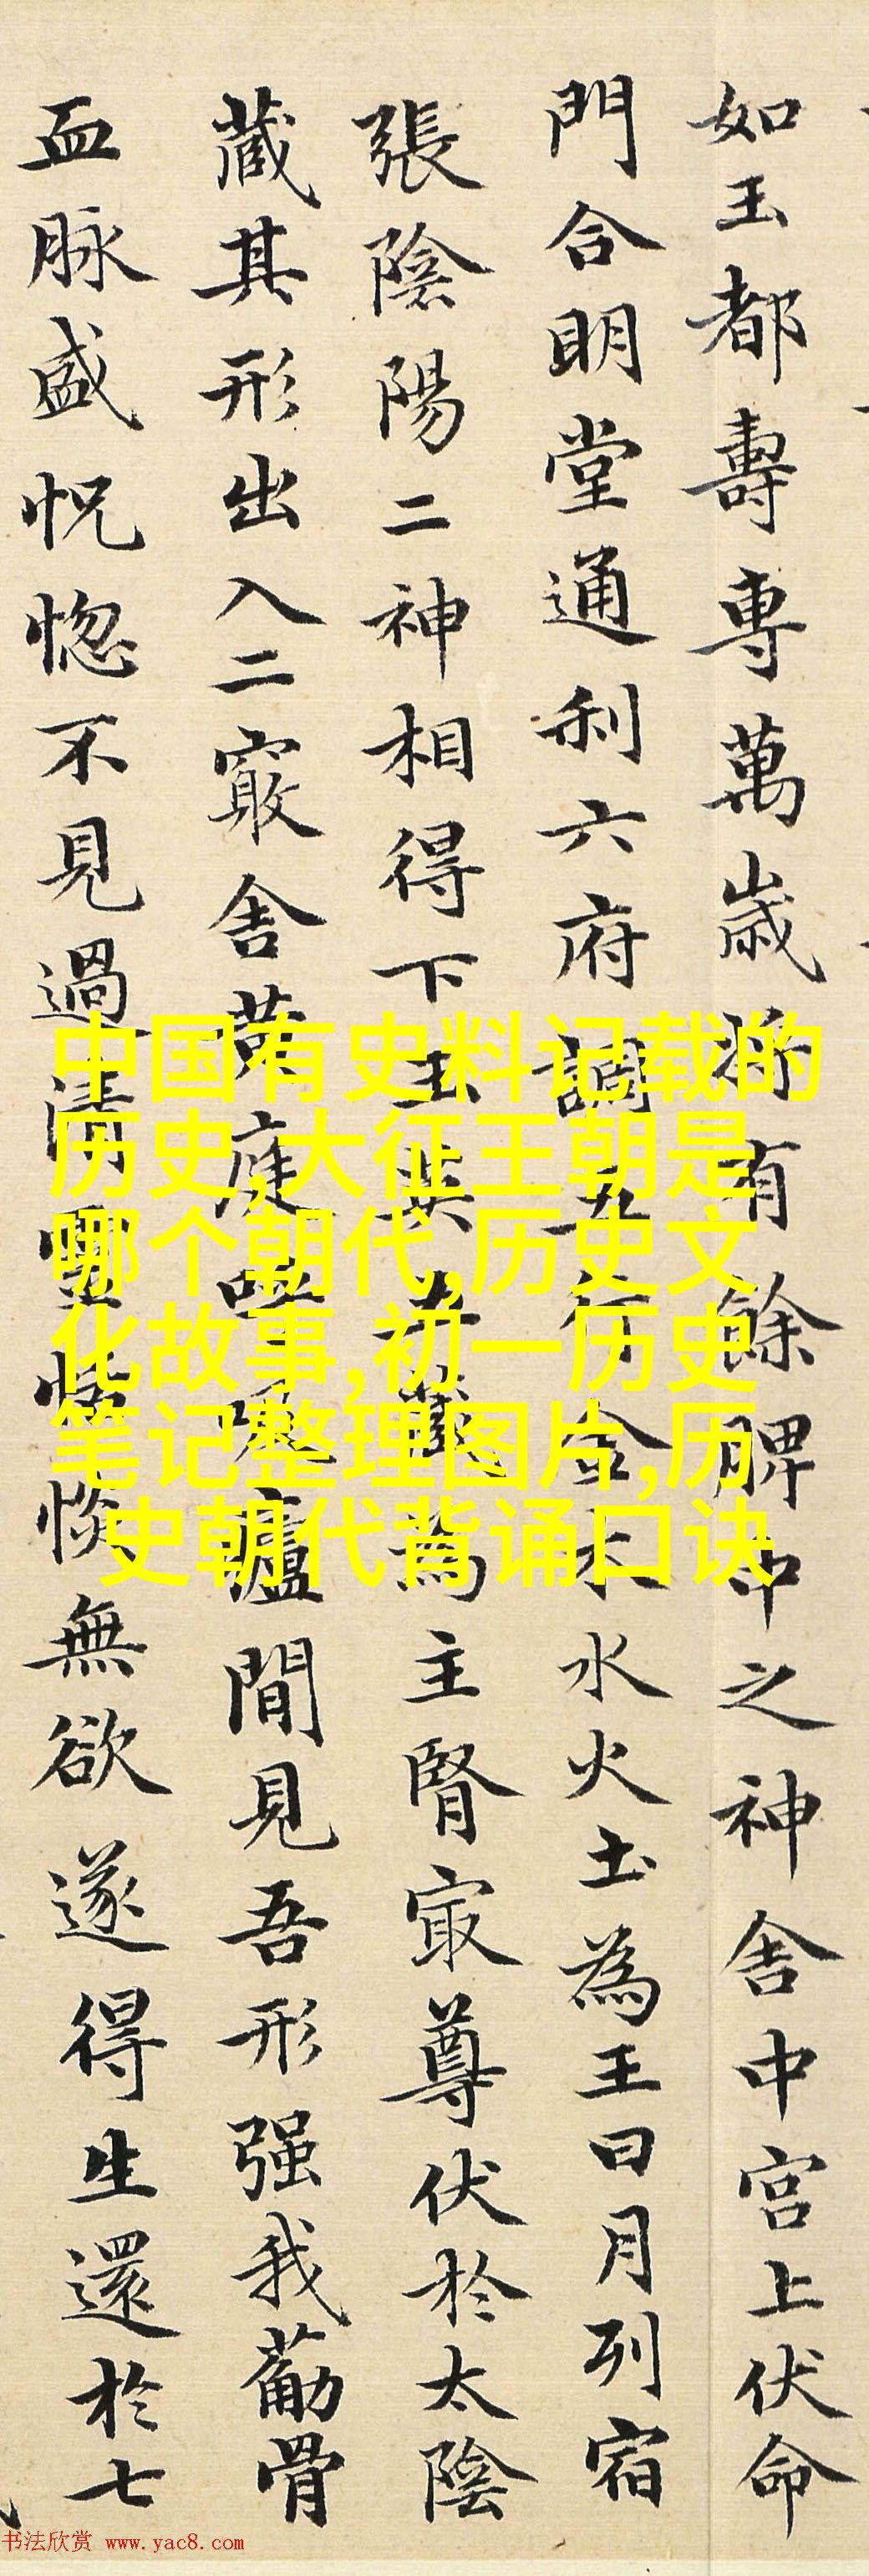 如玉都壽專萬歲將有餘脾中之神舍中宮上伏命
門合明堂通利六府調五行金木水火土為王日月列宿
張陰陽二神相得下玉英五藏為主腎冣尊伏於太陰
藏其形出入二竅舍黃庭呼吸廬間見吾形强我葡骨
血脉盛怳惚不見過清靈恬惔無欲遂得生還於七
中国有史料记载的
历史,大征王朝是
哪个朝代,历史文
化故事,初一历史
笔记整理图片,历
史朝代背诵口诀
书法欣赏 www.yac8.com